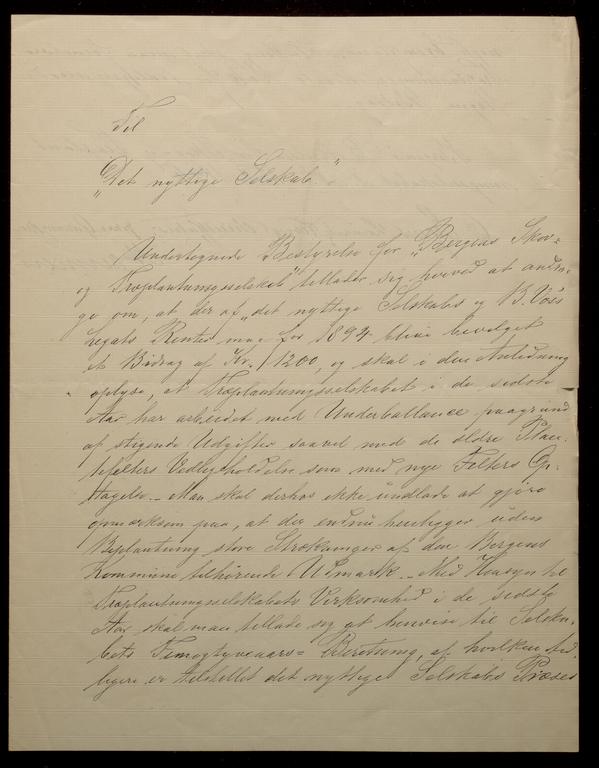 Til
„Det nyttige Selskab"
Undertegnede Bestyrelse for „Bergens Skov-
og Træplantningsselskab" tillader sig herved at andra-
ge om, at der af „det nyttige Selskabs og B. Vos's
Legats Renter maa for 1894 blive bevilget
et Bidrag af Kr. 1200, og skal i den Anledning
oplyse, at Træplantningsselskabet i de sidste
Aar har arbeidet med Underballance paagrund
af stigende Udgifter saavel med de ældre Plan-
tefelters Vedligeholdelse som med nye Felters Op-
tagelse. – Man skal derhos ikke undlade at gjøre
opmærksom paa, at der endnu henligger uden
Beplantning store Strækninger af den Bergens
Kommune tilhørende Udmark. – Med Hensyn til
Træplantningsselskabets Virksomhed i de sidste
Aar skal man tillade sig at henvise til Selska-
bets Femogtyveaars= Beretning, af hvilken tid-
ligere er tilstillet det nyttige Selskabs Præses